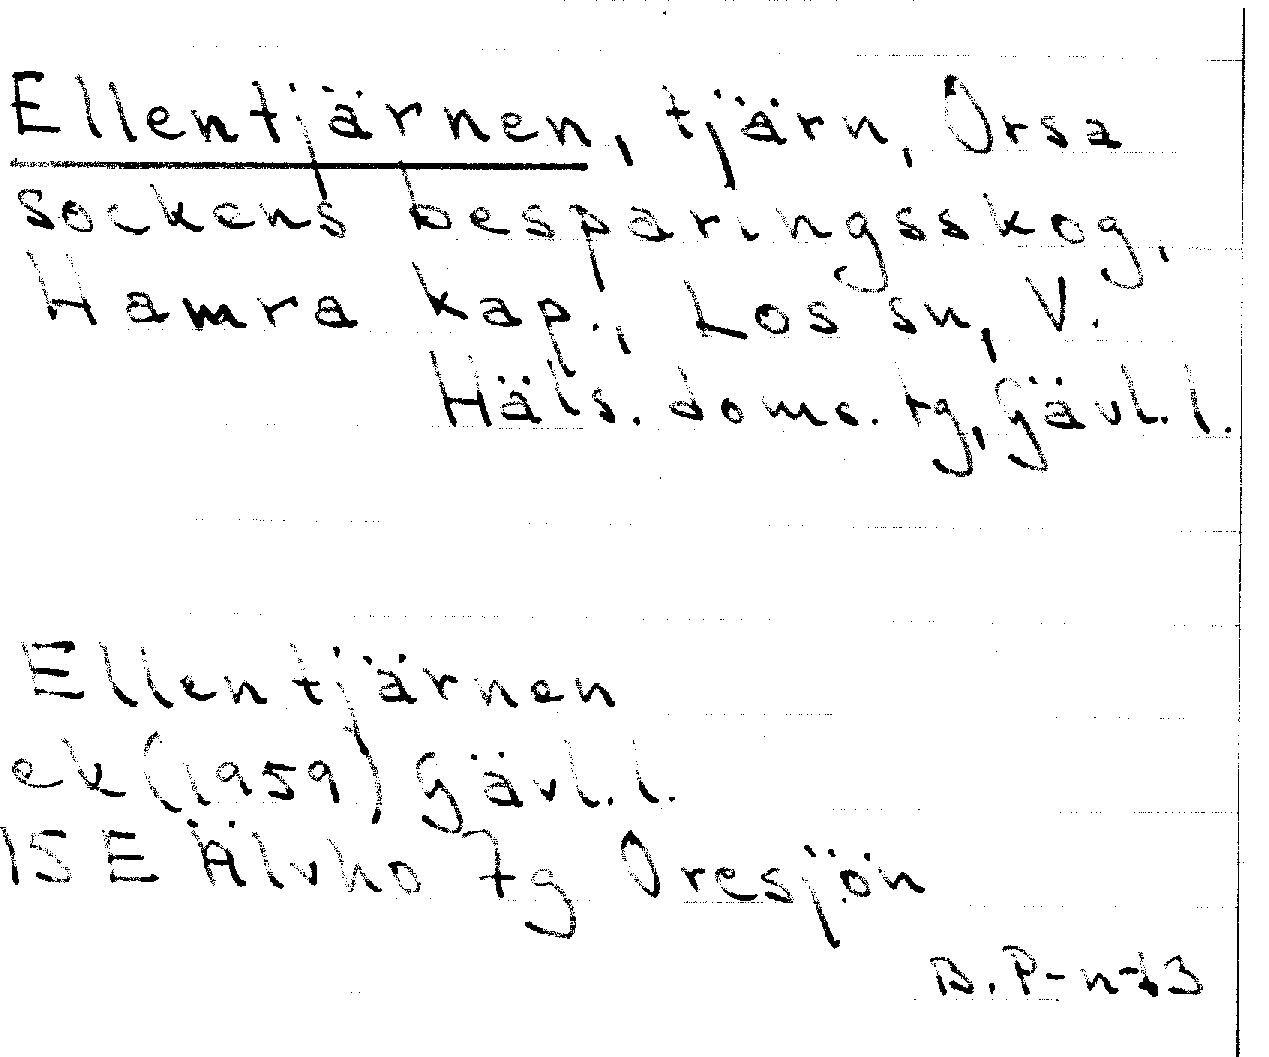 Ellentjärnen, tjärn, Orsa
sockens besparingsskog,
Hamra kap., Los sn, V.
Häls. doms. tg, Gävl. l.
Ellentjärnen
ek (1959) Gävl. l.
15E Älvho 7g Oresjön
B. P-n